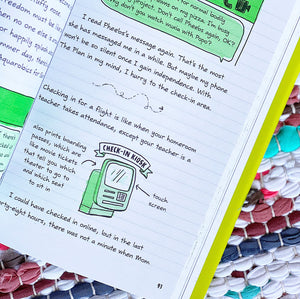 that normal bodily
on my pizza. I'm busy
Don't call Pheebs again, OK?
don't you watch movie with Popo?
I read Pheebs's message again. That's the most
she has messaged me in a while. But maybe my phone
won't be so silent once I gain independence. With
The Plan in my mind, I hurry to the check-in area.
Checking in for a flight is like when your homeroom
teacher takes attendance, except your teacher is a
also prints boarding
passes, which are
like movie tickets
that tell you which
theater to go to
and which seat
to sit in
CHECK-IN KIOSK
touch
screen
I could have checked in online, but in the last
forty-eight hours, there was not a minute when Mom
93
freedom must be
or happy